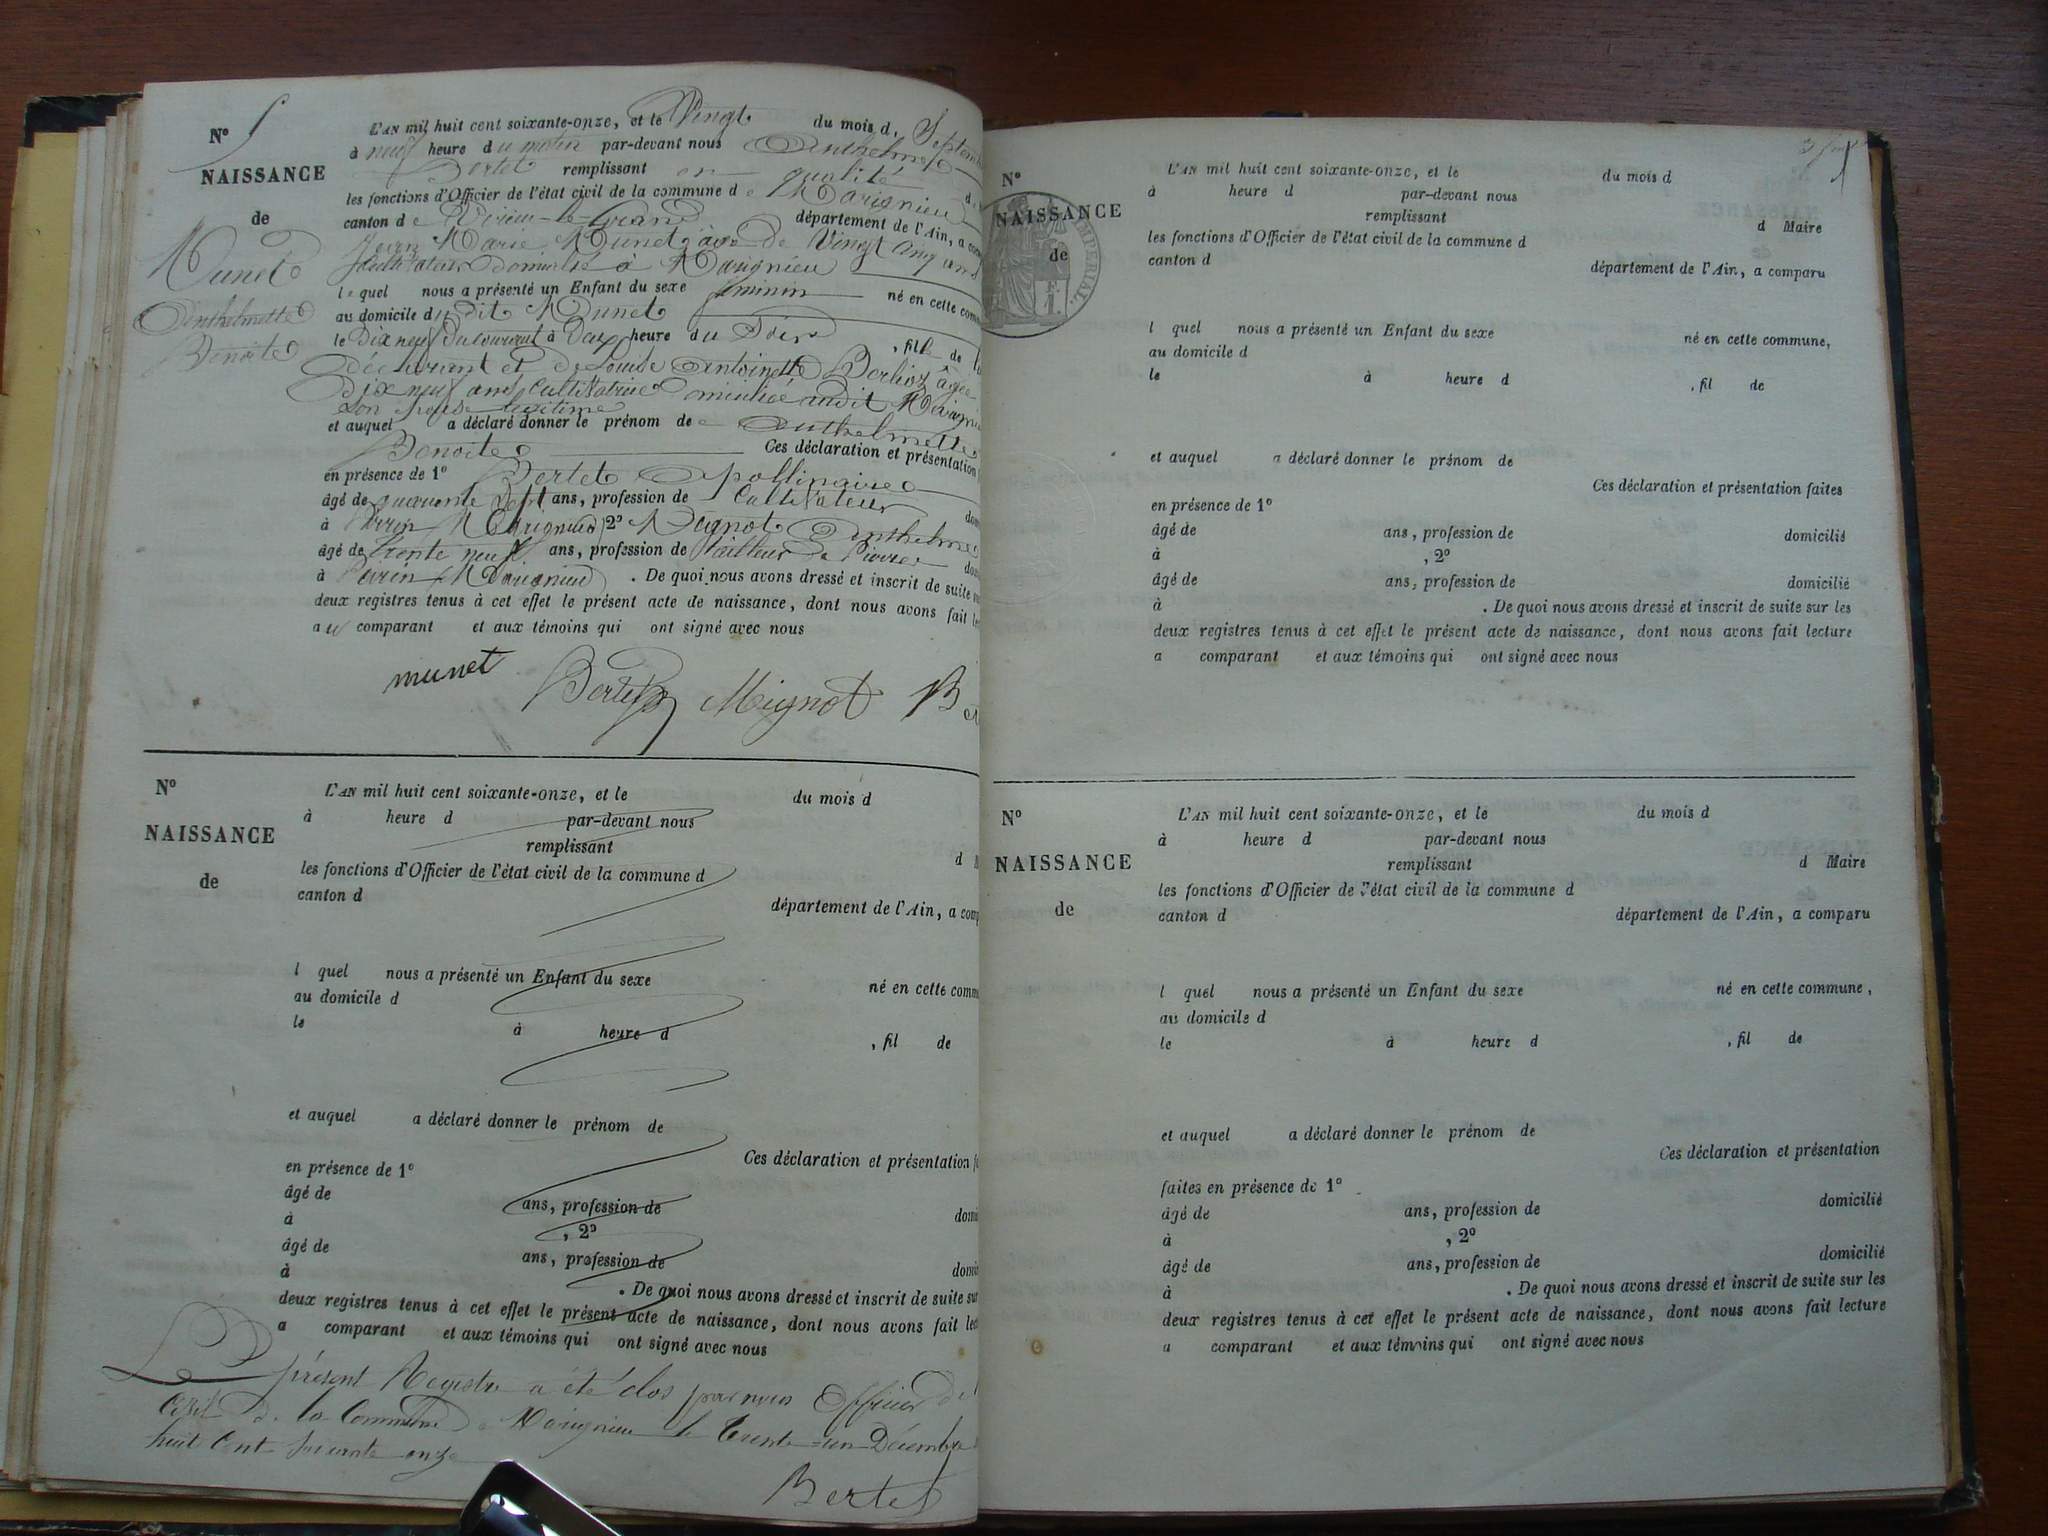 N° 5
NAISSANCE
de
Munet
Anthelmette
Benoite
L'AN mil huit cent soixante-onze, et le Vingt du mois d. Septem
à neuf heure du matin par-devant nous Anthelme
Bertet remplissant en qualité
les fonctions d'Officier de l'état civil de la commune de Marignieu d
canton de Virieu-le-Grand département de l'Ain, a com
Jean Marie Munet âgé de Vingt cinq ans
Cultivateur Domicilié à Marignieu
lequel nous a présenté un Enfant du sexe féminin né en cette com
au domicile du dit Munet
le Dix neuf du courant à Deux heure du Soir , fille de
déclarant et de Louise Antoinette Berlioz âgée
Dix neuf ans Cultivatrice Domiciliée audit Marignieu
son épouse légitime
et auquel a déclaré donner le prénom de Anthelmette
Benoite Ces déclaration et présentation
en présence de 1° Bertet Apollinaire
âgé de quarante Sept ans, profession de Cultivateur dom
à Poirin Marignieu, 2° Mignot Anthelme
âgé de trente neuf ans, profession de Tailleur de Pierre dom
à Poirin Marignieu . De quoi nous avons dressé et inscrit de suite su
deux registres tenus à cet effet le présent acte de naissance, dont nous avons fait le
au comparant et aux témoins qui ont signé avec nous
munet Bertet Mignot Be
N°
NAISSANCE
de
L'AN mil huit cent soixante-onze, et le du mois d
à heure d par-devant nous
remplissant d M
les fonctions d'Officier de l'état civil de la commune d
canton d département de l'Ain, a comp
l quel nous a présenté un Enfant du sexe né en cette comm
au domicile d
le à heure d , fil de
et auquel a déclaré donner le prénom de
Ces déclaration et présentation fa
en présence de 1°
âgé de ans, profession de domi
à , 2°
âgé de ans, profession de domi
à . De quoi nous avons dressé et inscrit de suite sur
deux registres tenus à cet effet le présent acte de naissance, dont nous avons fait lec
a comparant et aux témoins qui ont signé avec nous
Le présent Registre a été clos par nous Officier de l
Civil de la Commune de Marignieu le trente-un Décembre
huit Cent Soixante onze
Bertet
N°
NAISSANCE
de
IMPERIAL.
L'AN mil huit cent soixante-onze, et le du mois d
à heure d par-devant nous
remplissant d Maire
les fonctions d'Officier de l'état civil de la commune d
canton d département de l'Ain, a comparu
l quel nous a présenté un Enfant du sexe né en cette commune,
au domicile d
le à heure d , fil de
et auquel a déclaré donner le prénom de
Ces déclaration et présentation faites
en présence de 1°
âgé de ans, profession de domicilié
à , 2°
âgé de ans, profession de domicilié
à . De quoi nous avons dressé et inscrit de suite sur les
deux registres tenus à cet effet le présent acte de naissance, dont nous avons fait lecture
a comparant et aux témoins qui ont signé avec nous
N°
NAISSANCE
de
L'AN mil huit cent soixante-onze, et le du mois d
à heure d par-devant nous
remplissant d Maire
les fonctions d'Officier de l'état civil de la commune d
canton d département de l'Ain, a comparu
l quel nous a présenté un Enfant du sexe né en cette commune,
au domicile d
le à heure d , fil de
et auquel a déclaré donner le prénom de
Ces déclaration et présentation
faites en présence de 1°
âgé de ans, profession de domicilié
à , 2°
âgé de ans, profession de domicilié
à . De quoi nous avons dressé et inscrit de suite sur les
deux registres tenus à cet effet le présent acte de naissance, dont nous avons fait lecture
a comparant et aux témoins qui ont signé avec nous